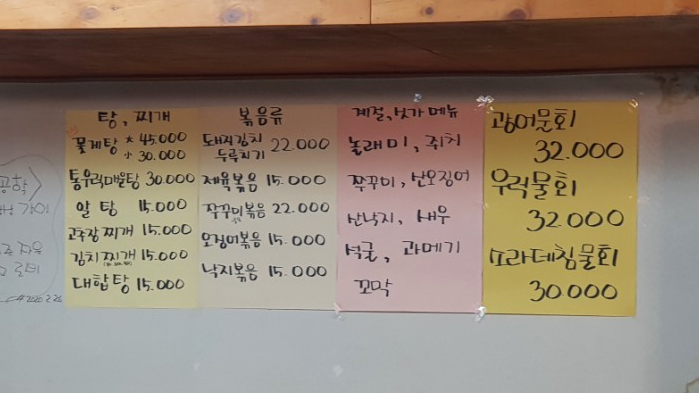 탕, 찌개
꽃게탕 大 45.000
小 30.000
통우럭매운탕 30.000
알 탕 15.000
고추장찌개 15.000
김치찌개 15.000
대합탕 15.000
볶음류
돼지김치
두루치기 22.000
제육볶음 15.000
쭈꾸미볶음 22.000
오징어볶음 15.000
낙지볶음 15.000
계절, 싯가 메뉴
놀래미, 쥐치
쭈꾸미, 산오징어
산낙지, 새우
석굴, 과메기
꼬막
광어물회
32.000
우럭물회
32.000
소라데침물회
30.000